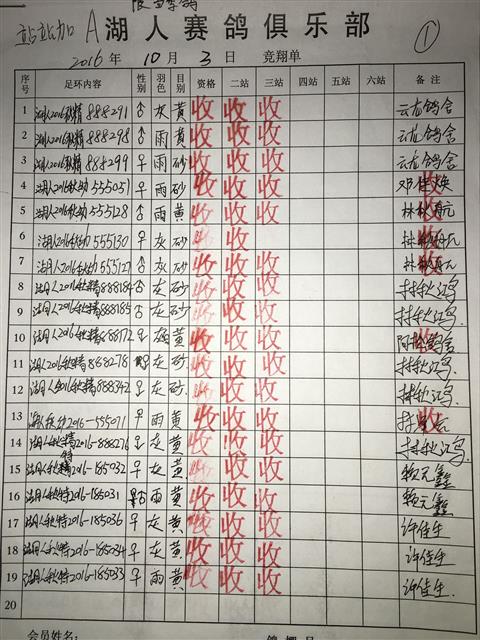 站站加 A 湖人赛鸽俱乐部 ①
2016年 10月 3日 竞翔单
序号 足环内容 性别 羽色 目别 资格 二站 三站 四站 五站 六站 备注
1 湖人2016秋精888291 ♂ 灰 黄 收 收 收 云龙鸽舍
2 湖人2016秋精888298 ♂ 雨 黄 收 收 收 云龙鸽舍
3 湖人2016秋精888299 ♀ 雨 砂 收 收 收 云龙鸽舍
4 湖人2016秋幼555051 ♀ 雨 砂 收 收 收 邓 收
5 湖人2016秋幼555128 ♂ 雨 黄 收 收 收 林 收
6 湖人2016秋幼555130 ♀ 灰 砂 收 收 收
7 湖人2016秋幼555127 ♂ 灰 砂 收 收 收 收
8 湖人2016秋精888184 ♂ 灰 砂 收 收 收 林秋鸿
9 湖人2016秋精888185 ♂ 灰 砂 收 收 收 林秋鸿
10 湖人2016秋精888172 黄 收 收 收 鸽舍 收
11 湖人2016秋精8888278 灰 砂 收 收 收 林秋鸿
12 湖人2016秋精888342 ♀ 灰 砂 收 收 收 林秋鸿
13 湖人秋幼2016-555071 ♀ 雨 黄 收 收 收 收
14 湖人秋精2016-888276 灰 黄 收 收 收 林秋鸿
15 湖人秋特2016-185032 ♀ 灰 黄 收 收 收 赖元鑫
16 湖人秋特2016-185031 雨 黄 收 收 收 赖元鑫
17 湖人秋特2016-185036 ♀ 灰 黄 收 收 收 许佳生
18 湖人秋特2016-185034 ♀ 灰 黄 收 收 收 许佳生
19 湖人秋特2016-185033 ♀ 雨 黄 收 收 收 许佳生
20
会员姓名: 鸽棚号